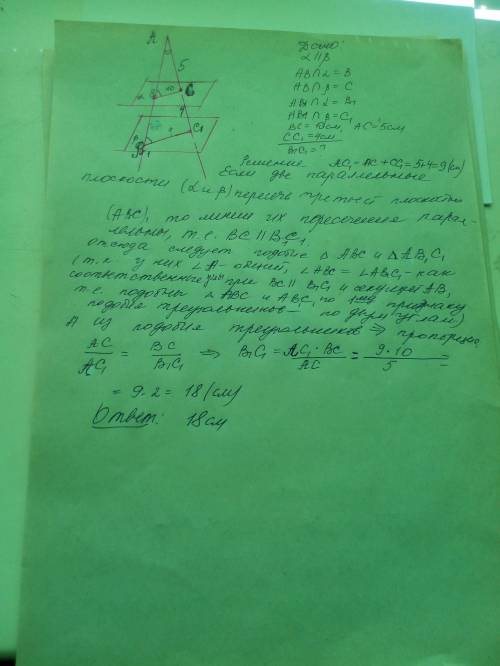 A
5
Дано:
α || β
AB ∩ α = B
AB ∩ β = C
AB₁ ∩ α = B₁
AB₁ ∩ β = C₁
BC = 10 см, AC = 5 см
CC₁ = 4 см
B₁C₁ = ?
α B 10 C
4
? C₁
B₁
Решение AC₁ = AC + CC₁ = 5+4 = 9 (см)
Если две параллельные
плоскости (α и β) пересеч третьей плоскостью
(ABC), то линии их пересечения парал-
лельны, т.е. BC || B₁C₁
отсюда следует подобие △ ABC и △ AB₁C₁
(т.к у них ∠A - общий, ∠ABC = ∠AB₁C₁ - как
соответственные при BC || B₁C₁ и секущей AB,
т.е. подобны △ABC и AB₁C₁ по признаку
подобия треугольников - по двум углам)
А из подобия треугольников ⇒ пропорция
AC/AC₁ = BC/B₁C₁ ⇒ B₁C₁ = AC₁·BC/AC = 9·10/5 =
= 9·2 = 18 (см)
Ответ: 18 см